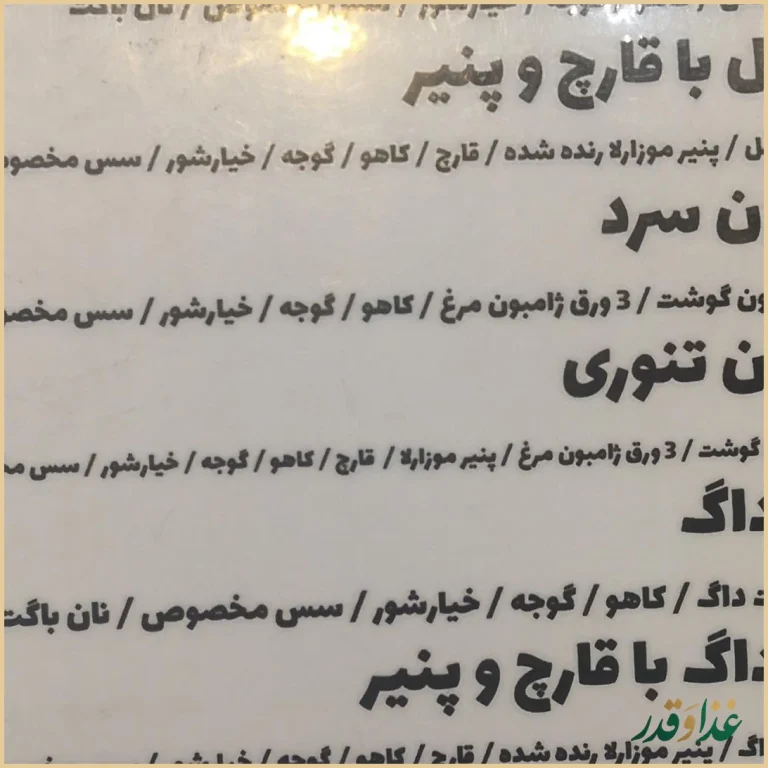 خیارشور / سس مخصوص / نان باگت
با قارچ و پنیر
/ پنیر موزارلا رنده شده / قارچ / کاهو / گوجه / خیارشور / سس
سرد
گوشت / 3 ورق ژامبون مرغ / کاهو / گوجه / خیارشور / سس
تنوری
گوشت / 3 ورق ژامبون مرغ / پنیر موزارلا / قارچ / کاهو / گوجه / خیارشور / سس
داگ
داگ / کاهو / گوجه / خیارشور / سس مخصوص / نان باگت
داگ با قارچ و پنیر
/ پنیر موزارلا رنده شده / قارچ / کاهو / گوجه / خیارشور /
غذا و قدر